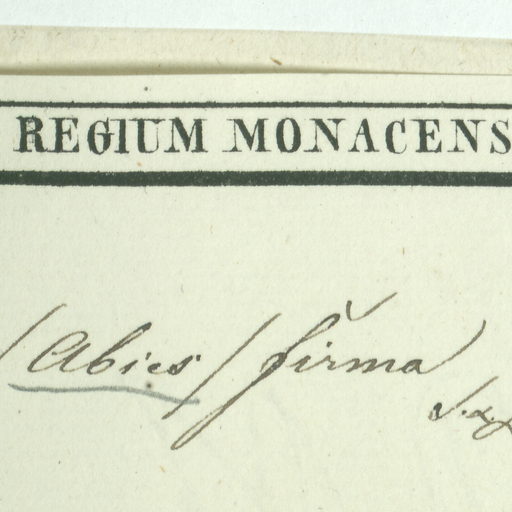 REGIUM MONACENS
(Abies) firma
S.&